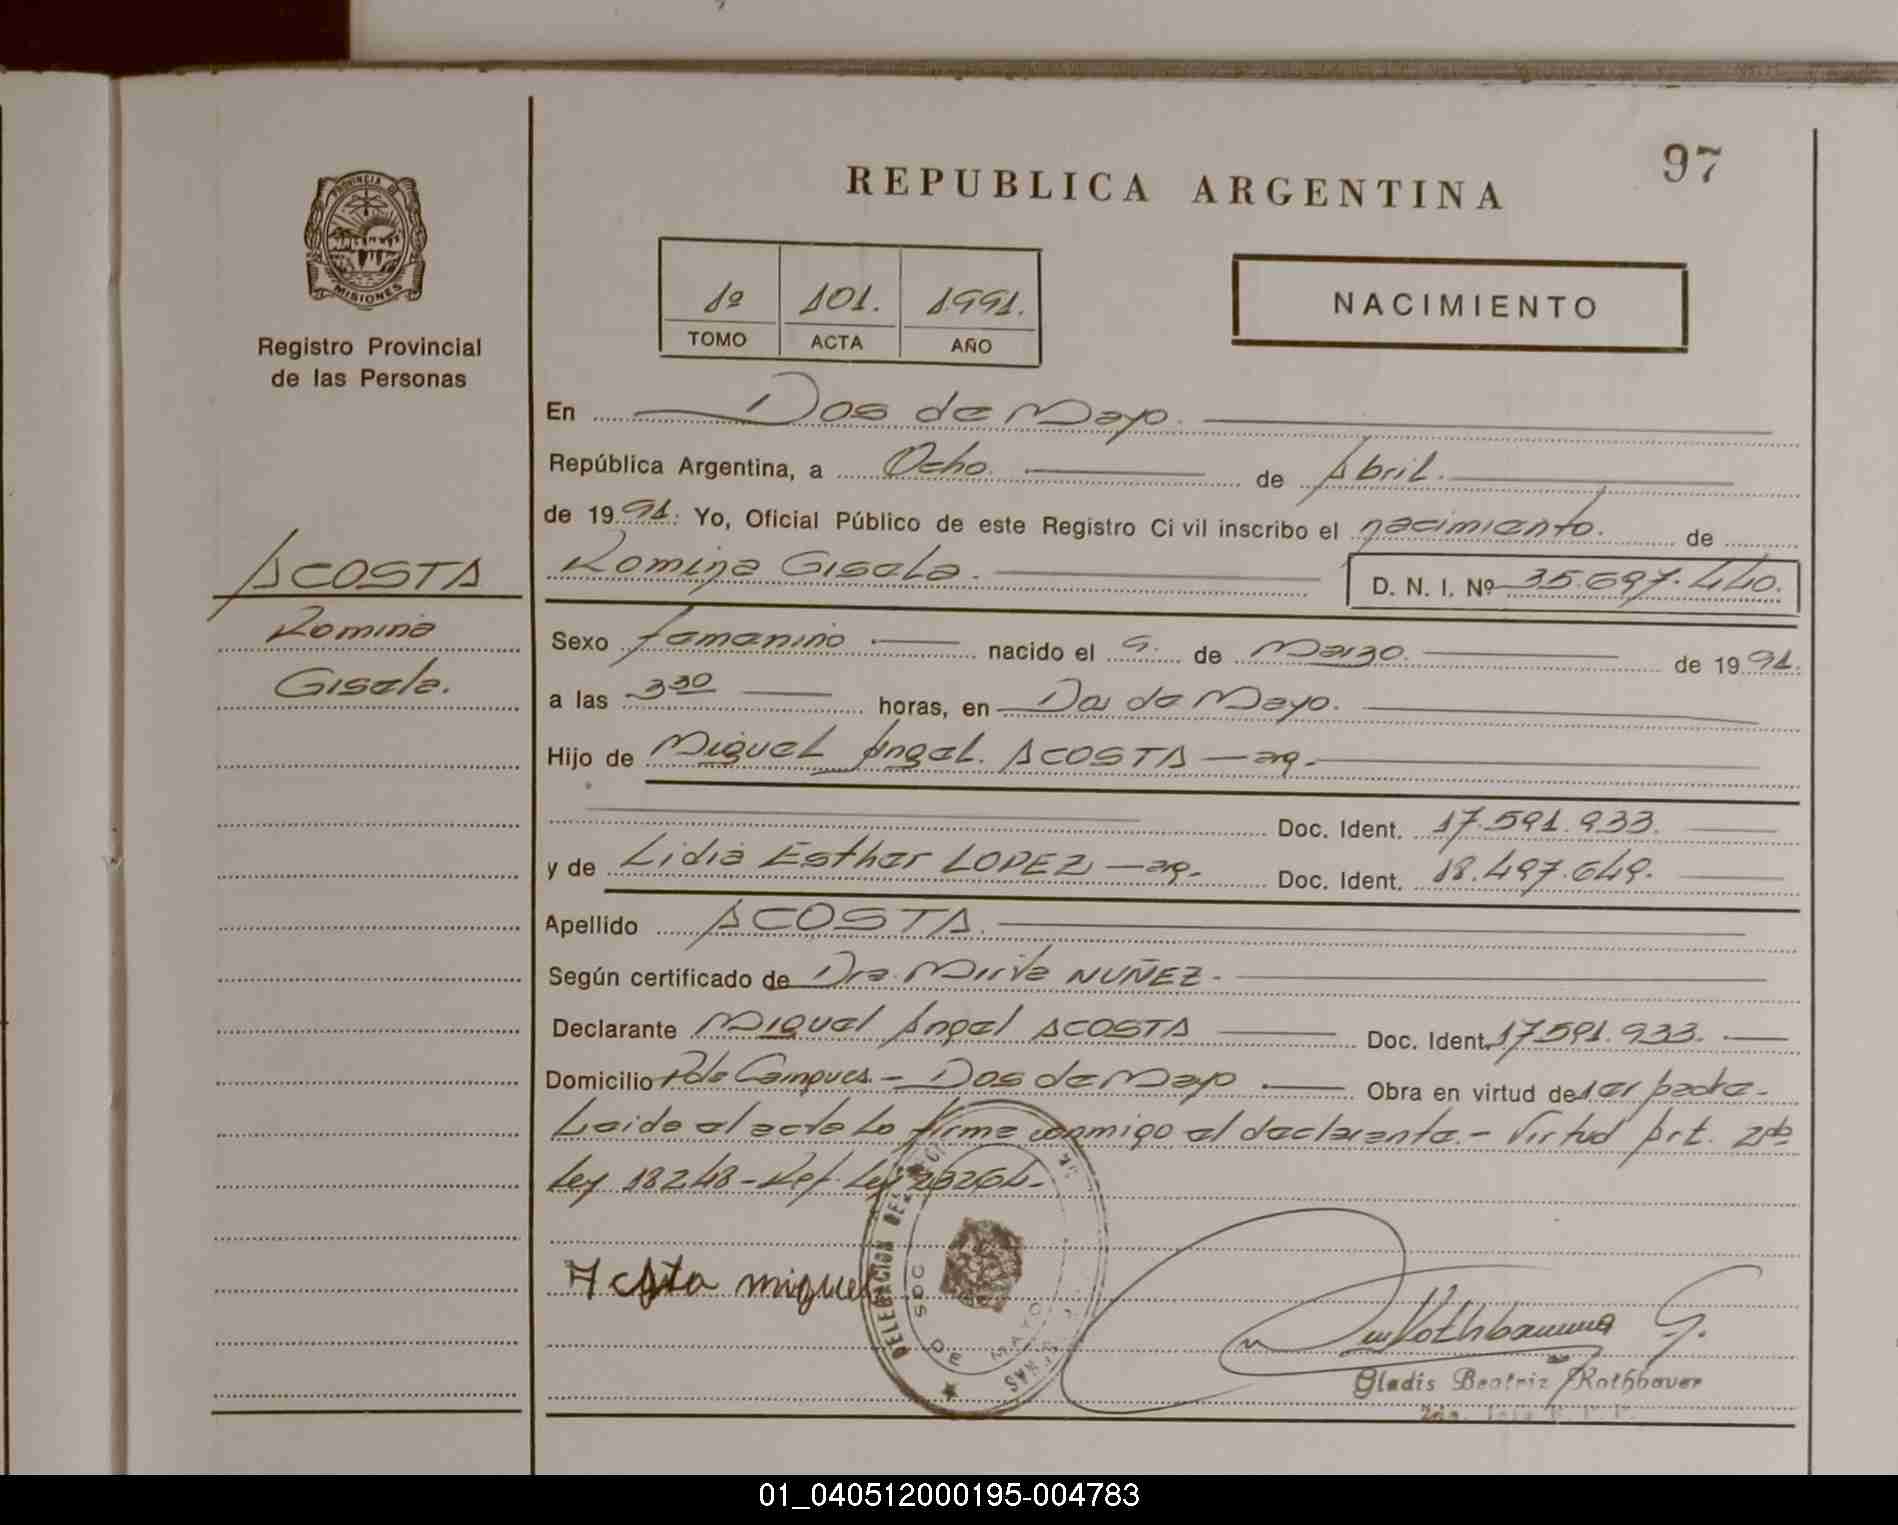 97
REPUBLICA ARGENTINA
PROVINCIA DE
MISIONES
Registro Provincial
de las Personas
1º 101. 1991.
TOMO ACTA AÑO
NACIMIENTO
En Dos de Mayo.
República Argentina, a Ocho. de Abril.
de 1991. Yo, Oficial Público de este Registro Ci vil inscribo el nacimiento. de
ACOSTA
Romina
Gisela.
Romina Gisela. D. N. I. Nº 35.697.440.
Sexo femenino nacido el 9. de Marzo. de 1991.
a las 3 30 horas, en Dos de Mayo.
Hijo de Miguel Angel. ACOSTA - arg.
Doc. Ident. 17.591.933.
y de Lidia Esther LOPEZ - arg. Doc. Ident. 18.497.649.
Apellido ACOSTA.
Según certificado de Dra. Mirta NUÑEZ.
Declarante Miguel Angel ACOSTA Doc. Ident. 17.591.933.
Domicilio Pdo - Dos de Mayo Obra en virtud de ser padre.
Leida el acta lo firma conmigo el declarante. - Virtud Art. 2do
Ley 18248 - Ref. Ley 23264.
Acosta miguel
DELEGACION DE
DOS DE MAYO
Rothbauer G.
Gladis Beatriz Rothbauer
01_040512000195-004783